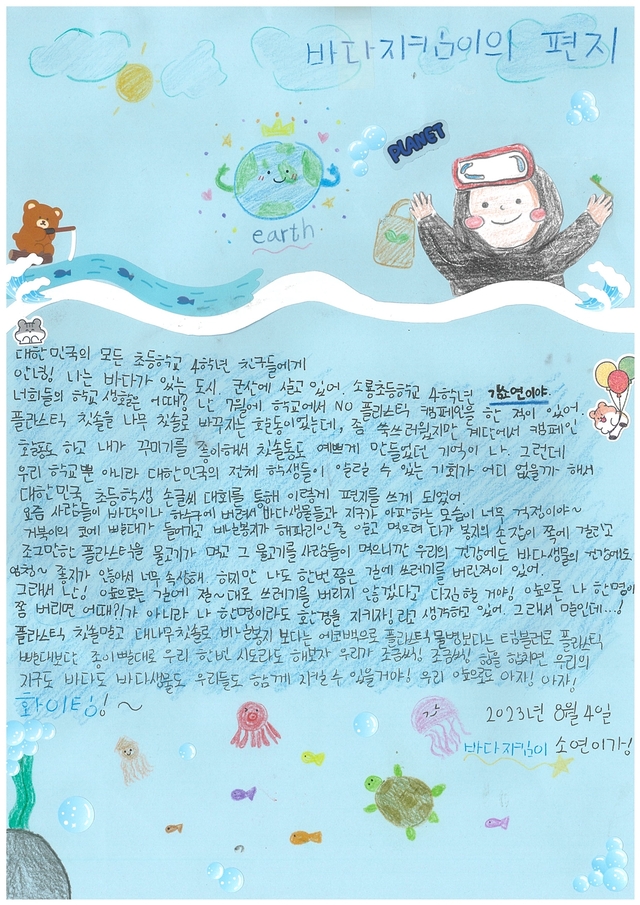 바다지킴이의 편지
PLANET
earth
대한민국의 모든 초등학교 4학년 친구들에게
안녕! 나는 바다가 있는 도시 군산에 살고 있어. 소룡초등학교 4학년 김소연이야
너희들의 학교 생활은 어때? 난 7월에 학교에서 NO 플라스틱 캠페인을 한 적이 있어.
플라스틱 칫솔을 나무 칫솔로 바꾸자는 활동이었는데, 좀 쑥쓰러웠지만 계단에서 캠페인
활동도 하고 내가 꾸미기를 좋아해서 칫솔통도 예쁘게 만들었던 기억이 나. 그런데
우리 학교뿐 아니라 대한민국의 전체 학생들이 알릴 수 있는 기회가 어디 없을까 해서
대한민국 초등학생 손글씨 대회를 통해 이렇게 편지를 쓰게 되었어
요즘 사람들이 바닥이나 하수구에 버려서 바다생물들과 지구가 아파하는 모습이 너무 걱정이야~
거북이의 코에 빨대가 들어가고 비닐봉지가 해파리인줄 알고 먹으려 다가 복지의 손잡이 쪽에 걸리고
조그만한 플라스틱을 물고기가 먹고 그 물고기를 사람들이 먹으니깐 우리의 건강에도 바다생물의 건강에도
엄청~ 좋지가 않아서 너무 속상해. 하지만 나도 한번 쯤은 길에 쓰레기를 버린적이 있어.
그래서 난! 앞으로는 길에 절~대로 쓰레기를 버리지 않겠다고 다짐할 거야! 앞으로 나 한명이
쯤 버리면 어때?!가 아니라 나 한명이라도 환경을 지키자!라고 생각하고 있어. 그래서 말인데...!
플라스틱 칫솔말고 대나무칫솔로 비닐봉지 보다는 에코백으로 플라스틱 물병보다는 텀블러로 플라스틱
빨대보단 종이빨대로 우리 한번 시도라도 해보자 우리가 조금씩! 조금씩! 힘을 합치면 우리의
지구도 바다도 바다생물도 우리들도 함께 지킬 수 있을거야! 우리 앞으로도 아자! 아자!
화이팅! ~
2023년 8월 4일
바다지킴이 소연이가!